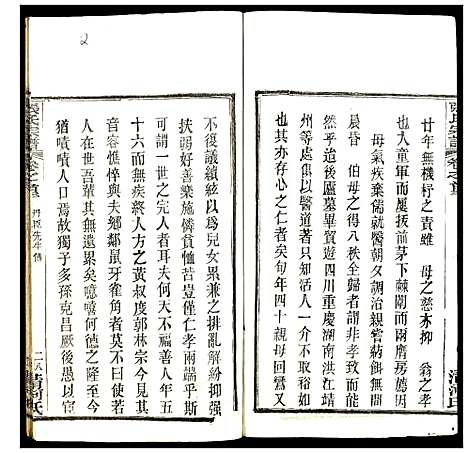 張氏宗譜
卷之首
廿年無機杼之責雖　母之慈亦抑　翁之孝
也大童軍而前茅下棘闈而兩膺房薦因
母氣疾棄儒就醫朝夕調治親嘗藥餌無問
晨昏　伯母之得八秩全歸者謂非孝不能
致然後廬墓畢貿遊四川重慶湖南洪江荊
州等處所至以醫道著只知活人一介不取裕如
也其亦存心之仁者矣旬年四十親母回鸞又
清河氏
2
不復議續絃以爲兒女累兼之排亂解紛抑強
扶弱好善樂施憐貧恤苦豈僅仁孝兩端乎斯
可謂一世之完人者耳夫何天不福善人年五
十六而無疾終人方之黃叔度郭林宗今見其
音容惟悴與夫鄉鄰鼠牙雀角者莫不曰使若
人在世吾其無還累矣噫嘻何德之隆至今
猶嘖嘖人口焉故獨子多孫克昌厥後愚以官
張氏宗譜
卷之首
丹臣先生傳
二八
清河氏